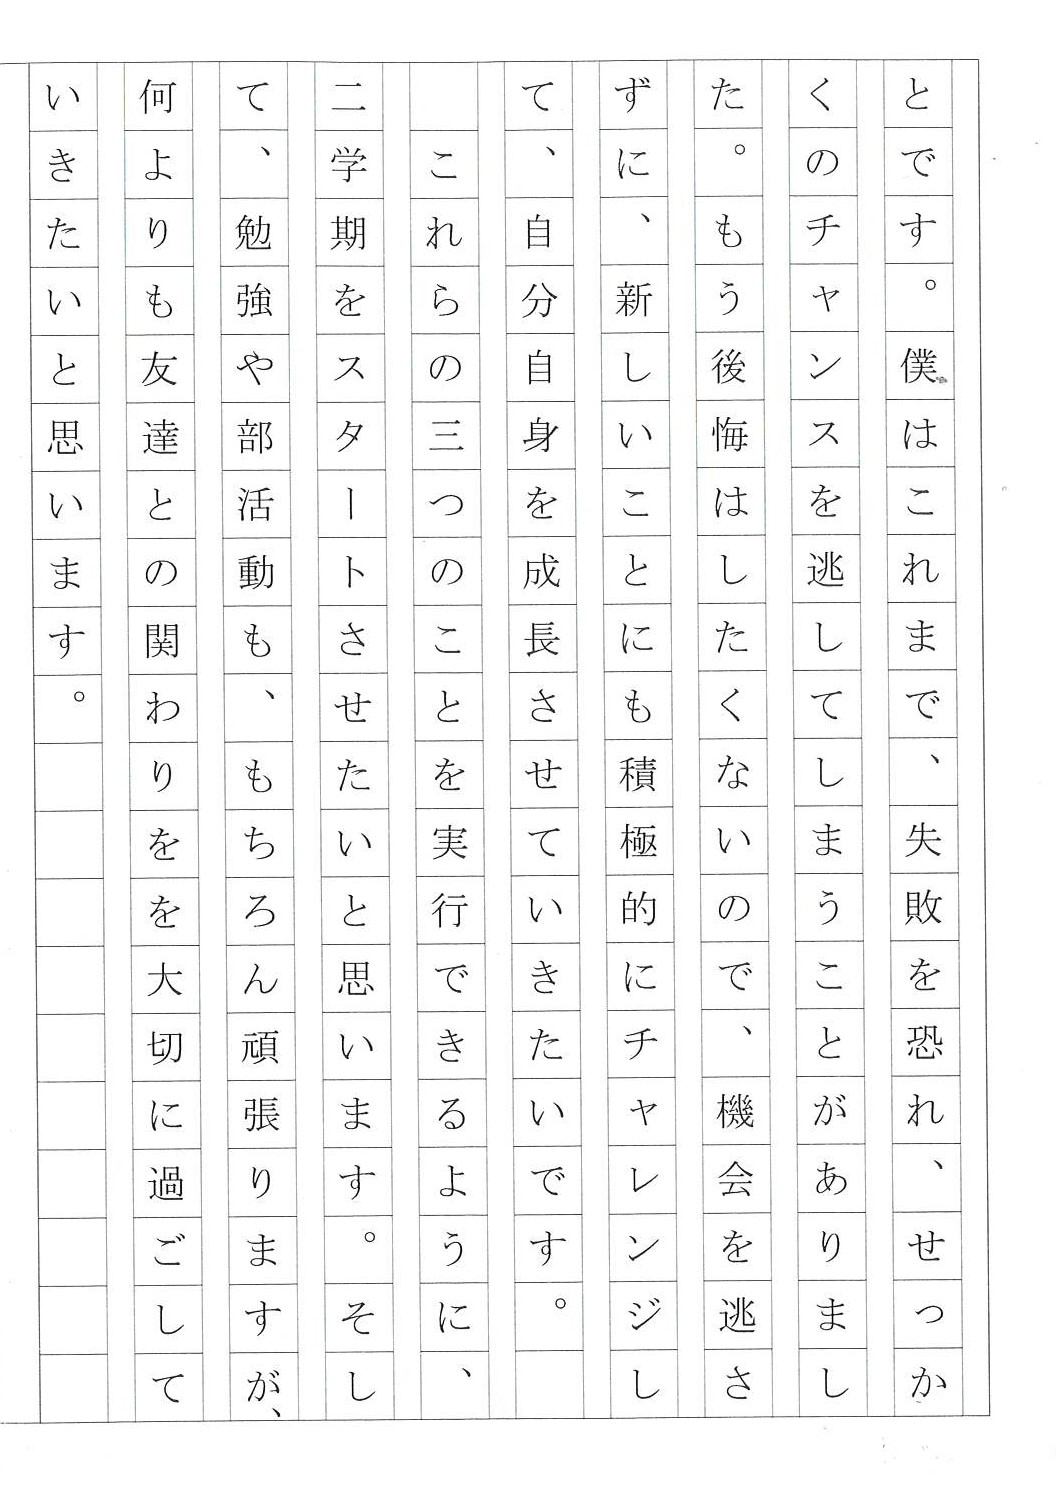 とです。僕はこれまで、失敗を恐れ、せっか
くのチャンスを逃してしまうことがありまし
た。もう後悔はしたくないので、機会を逃さ
ずに、新しいことにも積極的にチャレンジし
て、自分自身を成長させていきたいです。
　これらの三つのことを実行できるように、
二学期をスタートさせたいと思います。そし
て、勉強や部活動も、もちろん頑張りますが、
何よりも友達との関わりをを大切に過ごして
いきたいと思います。